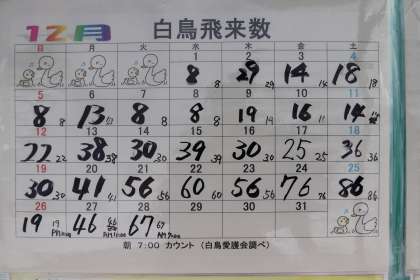 12月 白鳥飛来数
日 月 火 水 木 金 土
1 2 3 4
8 8 29 29 14 14 18 18
5 6 7 8 9 10 11
8 8 13 8 8 8 8 8 19 14 16 11 14
12 13 14 15 16 17 18
22 22 38 38 30 30 39 39 30 30 25 25 36 36
19 20 21 22 23 24 25
30 30 41 41 56 56 60 60 56 56 76 76 86 86
26 27 28 29 30 31
19 19 46 46 67 67
朝 7:00 カウント (白鳥愛護会調べ)